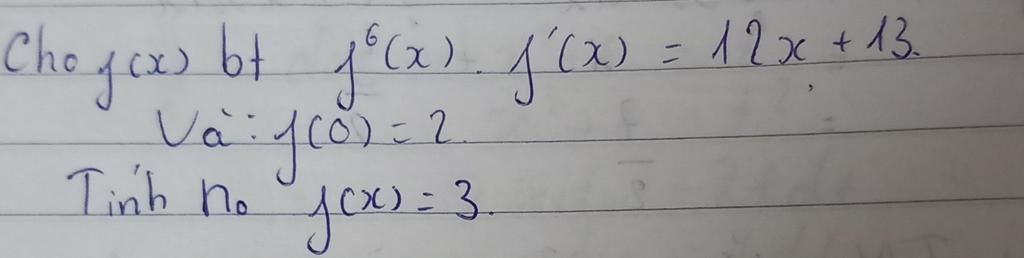 Cho f(x) bt f⁶(x). f'(x) = 12x + 13.
Và: f(0) = 2.
Tính n₀ f(x) = 3.